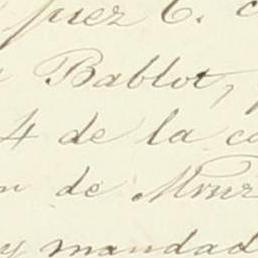 juez C.
Bablot,
4 de la
de
y mandad